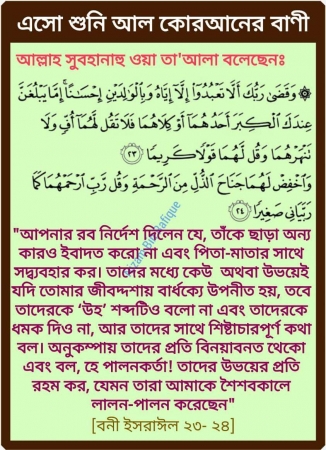 এসো শুনি আল কোরআনের বাণী
আল্লাহ সুবহানাহু ওয়া তা'আলা বলেছেনঃ
۞ وَقَضَىٰ رَبُّكَ أَلَّا تَعْبُدُوٓا۟ إِلَّآ إِيَّاهُ وَبِٱلْوَٰلِدَيْنِ إِحْسَٰنًا ۚ إِمَّا يَبْلُغَنَّ
عِندَكَ ٱلْكِبَرَ أَحَدُهُمَآ أَوْ كِلَاهُمَا فَلَا تَقُل لَّهُمَآ أُفٍّ وَلَا
نَنْهَرْهُمَا وَقُل لَّهُمَا قَوْلًا كَرِيمًا ٢٣
وَٱخْفِضْ لَهُمَا جَنَاحَ ٱلذُّلِّ مِنَ ٱلرَّحْمَةِ وَقُل رَّبِّ ٱرْحَمْهُمَا كَمَا
رَبَّيَانِى صَغِيرًا ٢٤
"আপনার রব নির্দেশ দিলেন যে, তাঁকে ছাড়া অন্য
কারও ইবাদত করো না এবং পিতা-মাতার সাথে
সদ্ব্যবহার কর। তাদের মধ্যে কেউ অথবা উভয়েই
যদি তোমার জীবদ্দশায় বার্ধক্যে উপনীত হয়, তবে
তাদেরকে 'উহ' শব্দটিও বলো না এবং তাদেরকে
ধমক দিও না, আর তাদের সাথে শিষ্টাচারপূর্ণ কথা
বল। অনুকম্পায় তাদের প্রতি বিনয়াবনত থেকো
এবং বল, হে পালনকর্তা! তাদের উভয়ের প্রতি
রহম কর, যেমন তারা আমাকে শৈশবকালে
লালন-পালন করেছেন"
[বনী ইসরাঈল ২৩- ২৪]